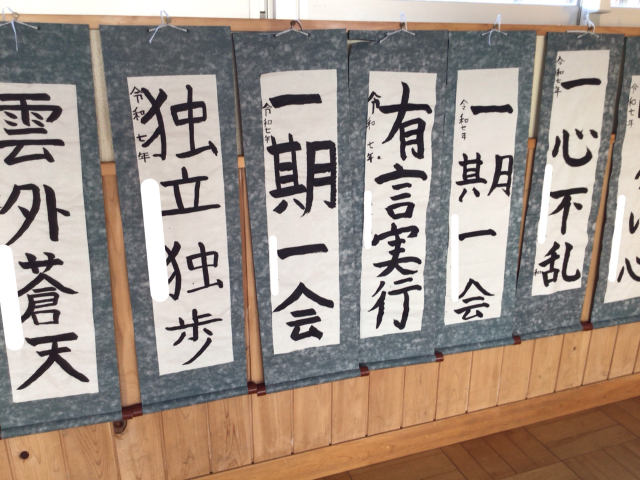 雲外蒼天
独立独歩
令和七年
一期一会
令和七年
有言実行
令和七年
一期一会
令和七年
一心不乱
令和七年
心